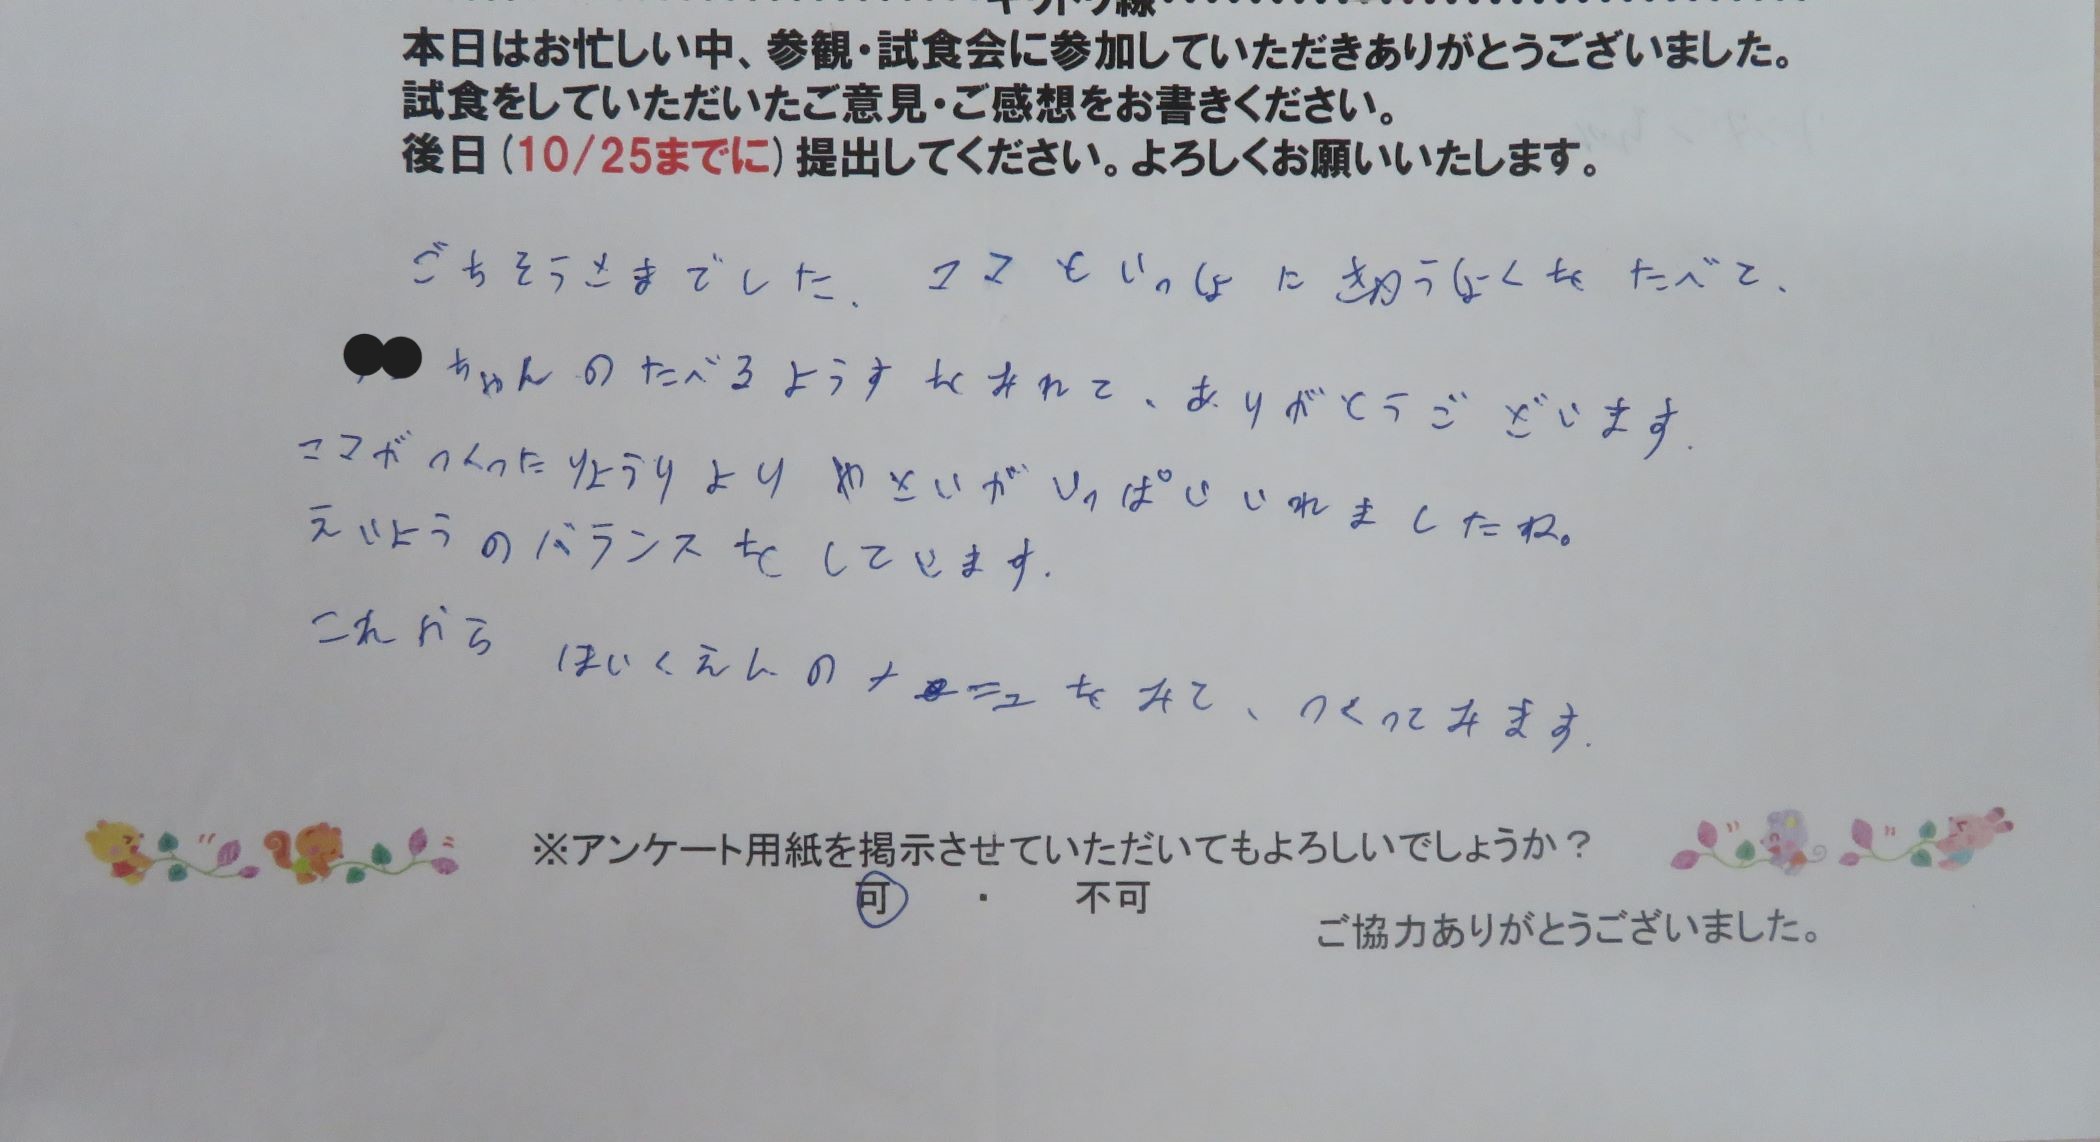 キリトリ線
本日はお忙しい中、参観・試食会に参加していただきありがとうございました。
試食をしていただいたご意見・ご感想をお書きください。
後日(10/25までに)提出してください。よろしくお願いいたします。
ごちそうさまでした. ママもいっしょに きゅうしょくを たべて、
ちゃんの たべる ようす をみれて、ありがとうご ざいます.
ママが つくった りょうり より やさいが いっぱい いれましたね。
えいようの バランスを しています.
これから ほいくえんの メニュをみて、つくってみます.
※アンケート用紙を掲示させていただいてもよろしいでしょうか?
可 ・ 不可
ご協力ありがとうございました。